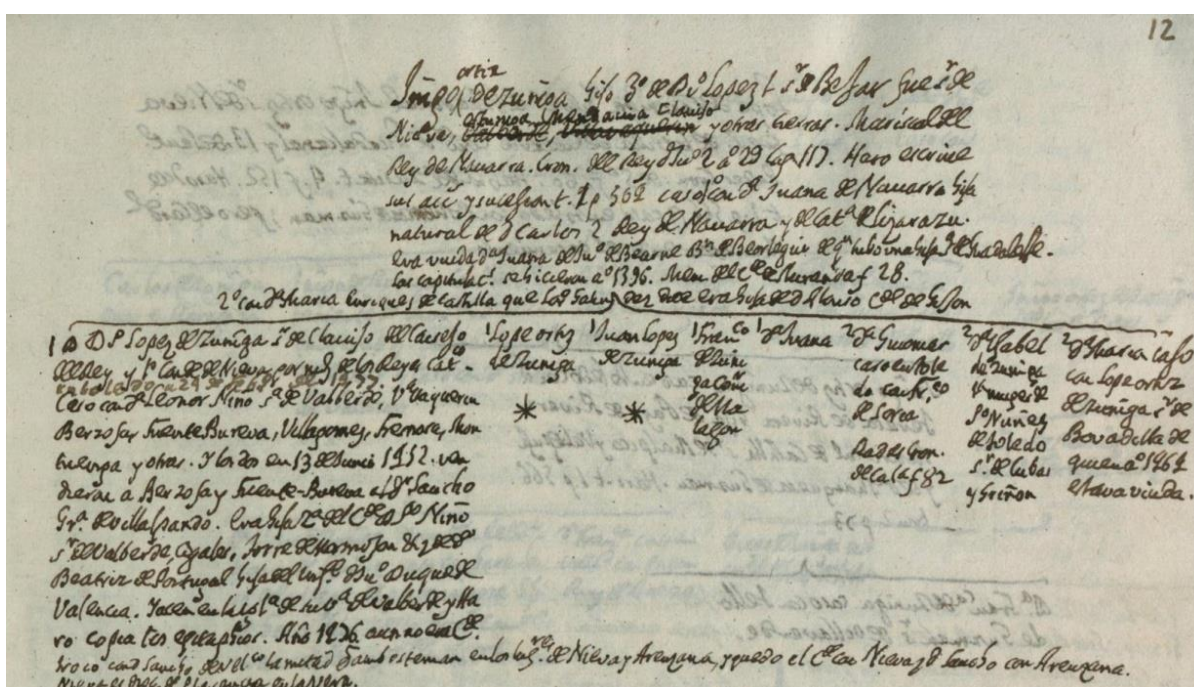 12
ortiz
Iñigo de Zuniga hijo 3º de Dº Lopez 1 sr de Bejar fue sr de
estuniga Mendavia Clavijo
Nieva, y otras tierras. Mariscal del
Rey de Navarra. Cron. del Rey dJuº 2 aº 29 Cap 117. Haro escrive
sus acc y sucession t. 1 p 562 caso con dª Juana de Navarra hija
natural de d Carlos 2 Rey de Navarra y de Catª de Lizarazu.
era viuda dª Juana de Juº de Bearne Bn de Beorlegui de qn hubo una hija
las capitulacs. se hicieron aº 1396. Mem del Ce de f 28.
2º con dª Maria Enriquez de Castilla que era hija de d Alonso Ce de Gijon
1 D Dº Lopez de Zuniga sr de Clavijo del Consejo
del Rey y 1º Conde de Nieva por md de los Reyes Catcos
Caso con dª Leonor Niño sª de Valverde, Vªvaquerin
Berzosa, Fuente Bureva, Villagomez, Tremore, Mon
tuenga y otras. Y los dos en 13 de Junio 1452. ven
dieron a Berzosa y Fuente-Bureva al dr Sancho
Grª. de Villalpando. Era hija 2ª del Ce d Pº Niño
sr de Valverde, Cigales, Torre de Hermosan &c y de dª
Beatriz de Portugal hija del Infe dJuº Duque de
Valencia. Yacen en la Iglª de de Valverde y Ha
ro copia los epitaphios. Año 1476 aun no era Ce.
Troco con d Sancho de Velco la mitad q ambos tenian en los lugres. de Nieva y Arenzana, y quedo el Ce con Nieva y d Sancho con Arenzana.
1 Lope ortiz
de Zuniga
*
1 Juan Lopez
de Zuniga
*
1 Franco
de Zuni
ga Con
de Ma
lagon
1 dª Juana
2 dª Guiomar
caso en Tole
do con Frco
de Soria
Rades Cron.
de Cala f 82
2 dª Isabel
de Zuniga
muger de
Pº Nuñez
de Toledo
sr. de Cubas
y Griñon
2 dª Maria caso
con Lope ortiz
de Zuniga sr de
Bovadilla de
quien aº 1462
estava viuda.